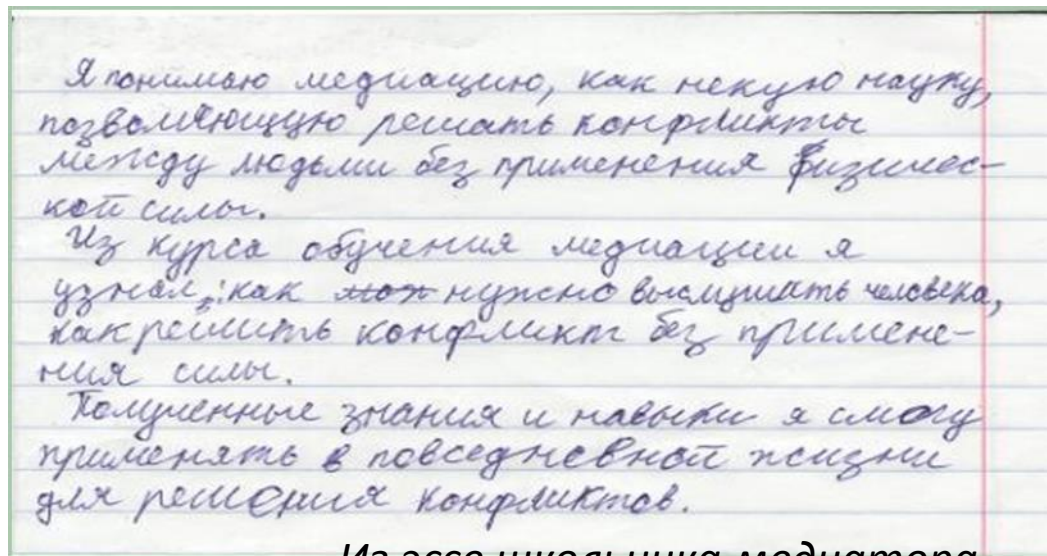 Я понимаю медиацию, как некую науку,
позволяющую решать конфликты
между людьми без применения физичес-
кой силы.
Из курса обучения медиации я
узнал,: как мож нужно выслушать человека,
как решить конфликт без примене-
ния силы.
Полученные знания и навыки я смогу
применять в повседневной жизни
для решения конфликтов.
Из эссе школьника медиатора